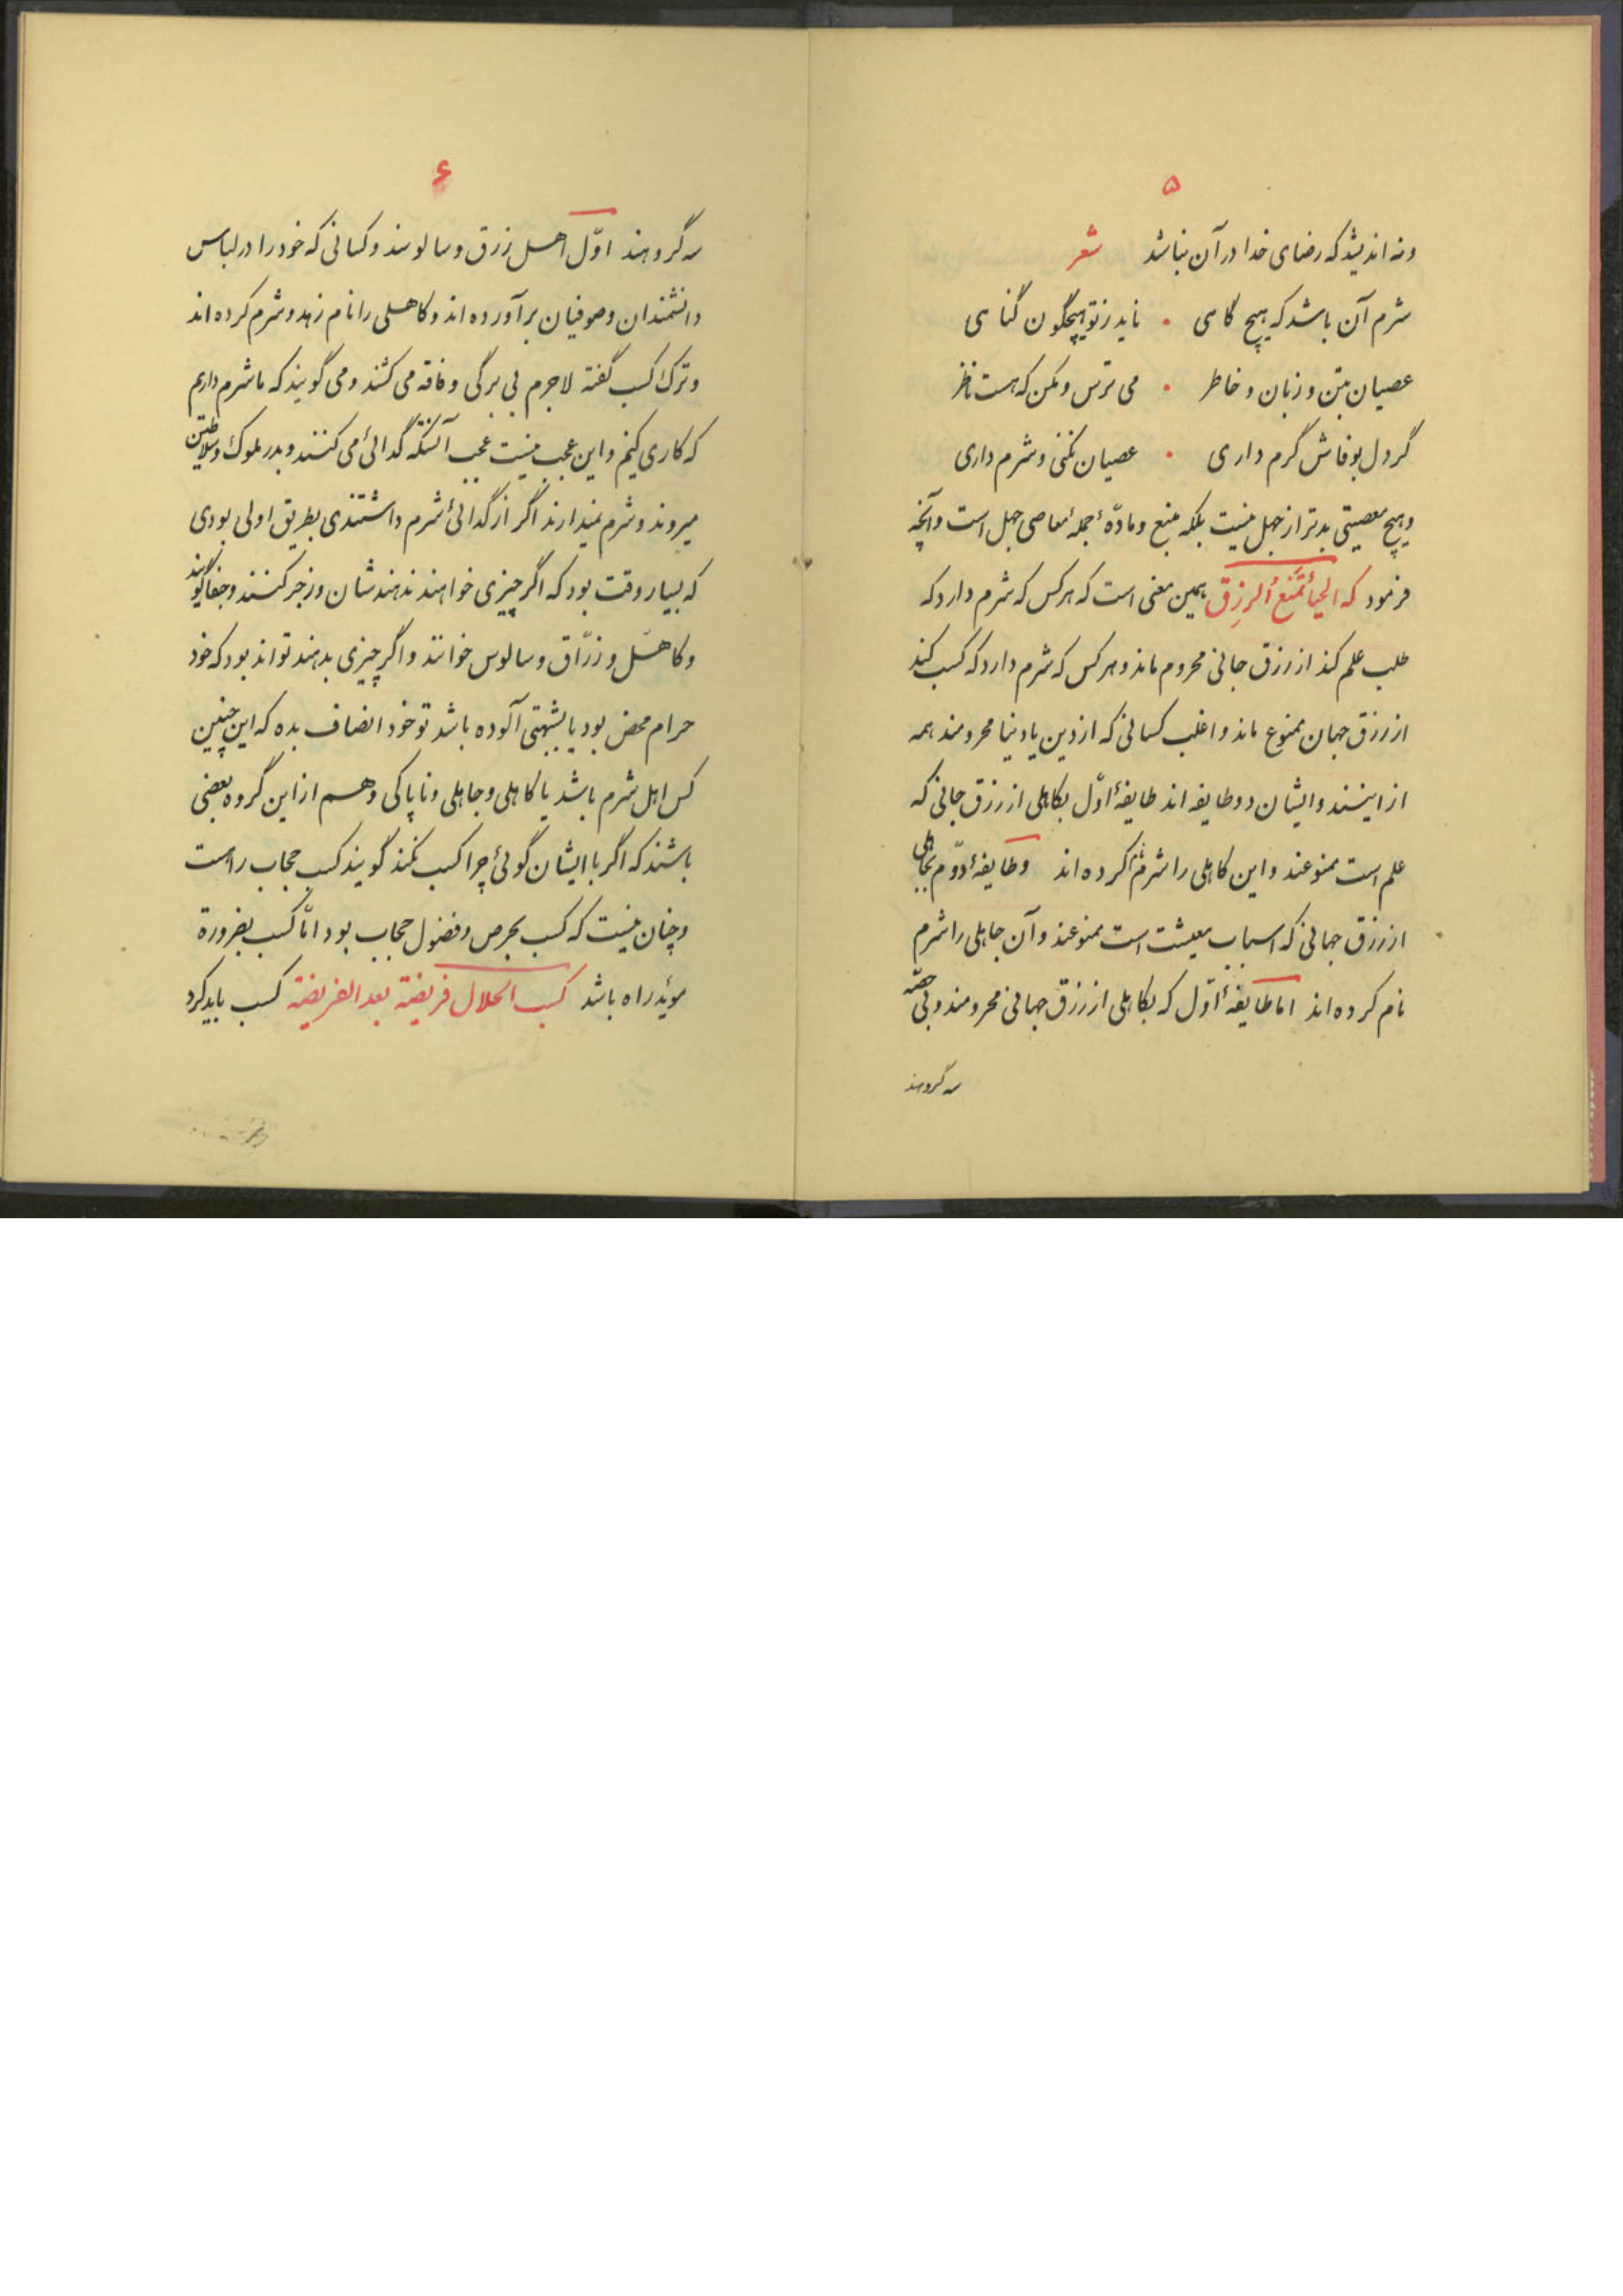 ۵
ونه اندیشد که رضای خدا در آن نباشد شعر
شرم آن باشد که هیچ گاهی • ناید ز تو هیچگون گناهی
عصیان بتن و زبان و خاطر • می ترس و مکن که هست ناظر
گر دل بوفاش گرم داری • عصیان نکنی و شرم داری
وهیچ معصیتی بدتر از جهل نیست بلکه منبع و مادّهٔ جملهٔ معاصی جهل است و آنچه
فرمود که الحیأ تمنع الرزق همین معنی است که هر کس که شرم دارد که
طلب علم کند از رزق جانی محروم ماند و هر کس که شرم دارد که کسب کند
از رزق جهان ممنوع ماند و اغلب کسانی که از دین یا دنیا محرومند همه
از اینند و ایشان دو طایفه اند طایفهٔ اوّل بکاهلی از رزق جانی که
علم است ممنوعند و این کاهلی را شرم کرده اند وطایفهٔ دوّم بجاهلی
از رزق جهانی که اسباب معیشت است ممنوعند و آن جاهلی را شرم
نام کرده اند اما طایفهٔ اوّل که بکاهلی از رزق جهانی محرومند و بی حصّه
سه گروهند
۶
سه گروهند اوّل اهل زرق و سالوسند و کسانی که خود را در لباس
دانشمندان وصوفیان برآورده اند و کاهلی را نام زهد و شرم کرده اند
و ترک کسب گفته لاجرم بی برگی و فاقه می کشند و می گویند که ما شرم داریم
که کاری کنیم و این عجب نیست عجب آنستکه گدائی می کنند و بدر ملوک و سلاطین
میروند و شرم نمیدارند اگر از گدائی شرم داشتندی بطریق اولی بودی
که بسیار وقت بود که اگر چیزی خواهند ندهندشان و زجر کنند و جفا گویند
و کاهل و زرّاق و سالوس خوانند و اگر چیزی بدهند تواند بود که خود
حرام محض بود یا بشبهتی آلوده باشد تو خود انصاف بده که این چنین
کس اهل شرم باشد یا کاهلی و جاهلی و ناپاکی و هم از این گروه بعضی
باشند که اگر با ایشان گوئی چرا کسب نکنند گویند کسب حجاب راهست
و چنان نیست که کسب بحرص و فضول حجاب بود امّا کسب بضرورة
موید راه باشد کسب الحلال فریضة بعد الفریضة کسب باید کرد